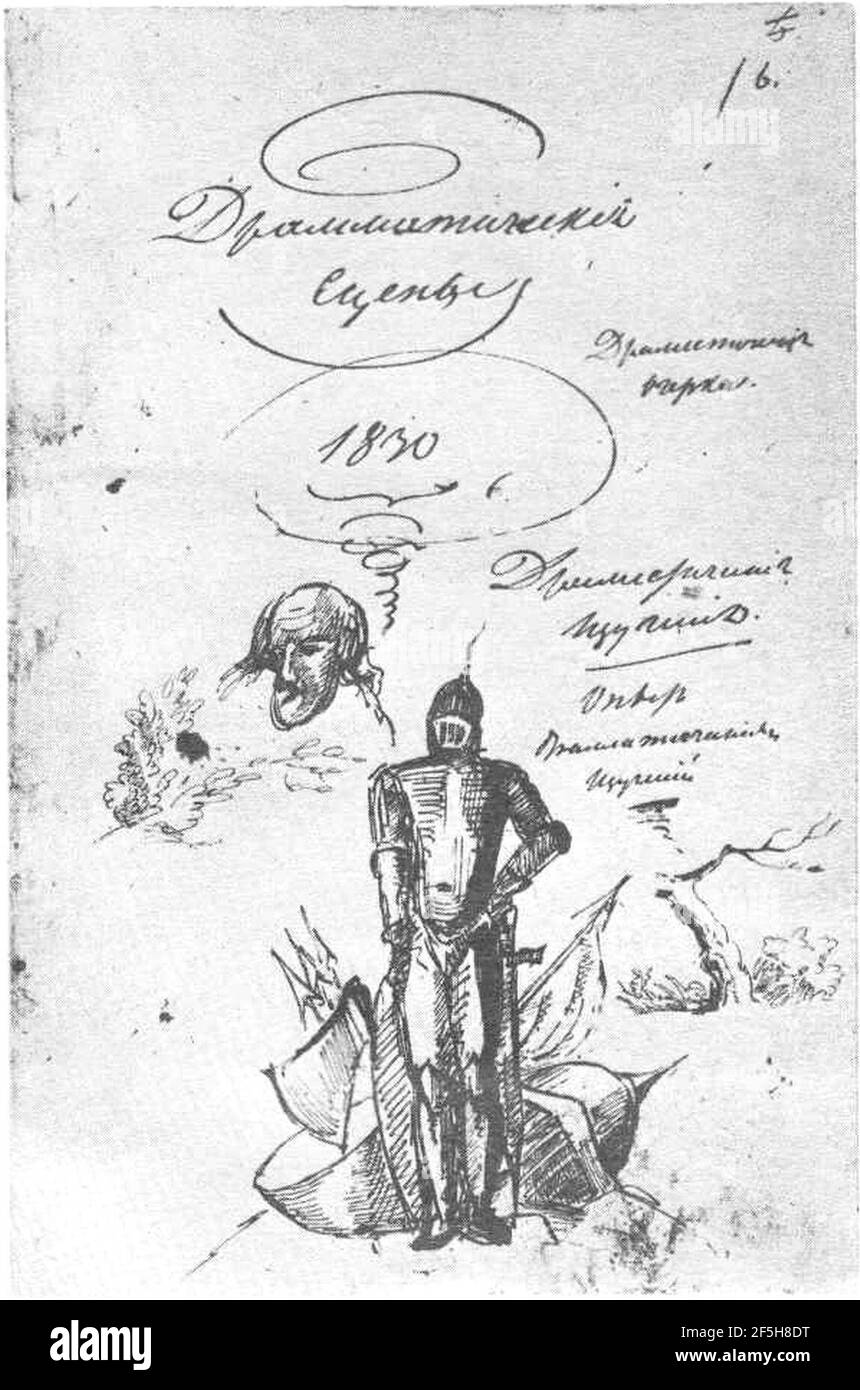 Драмматическiя
сцены
1830
Драмматическiе
очерки.
Драмматическiя
изучения.
Опыт
Драмматических
изучений
alamy
alamy
Image ID: 2F5H8DT
www.alamy.com